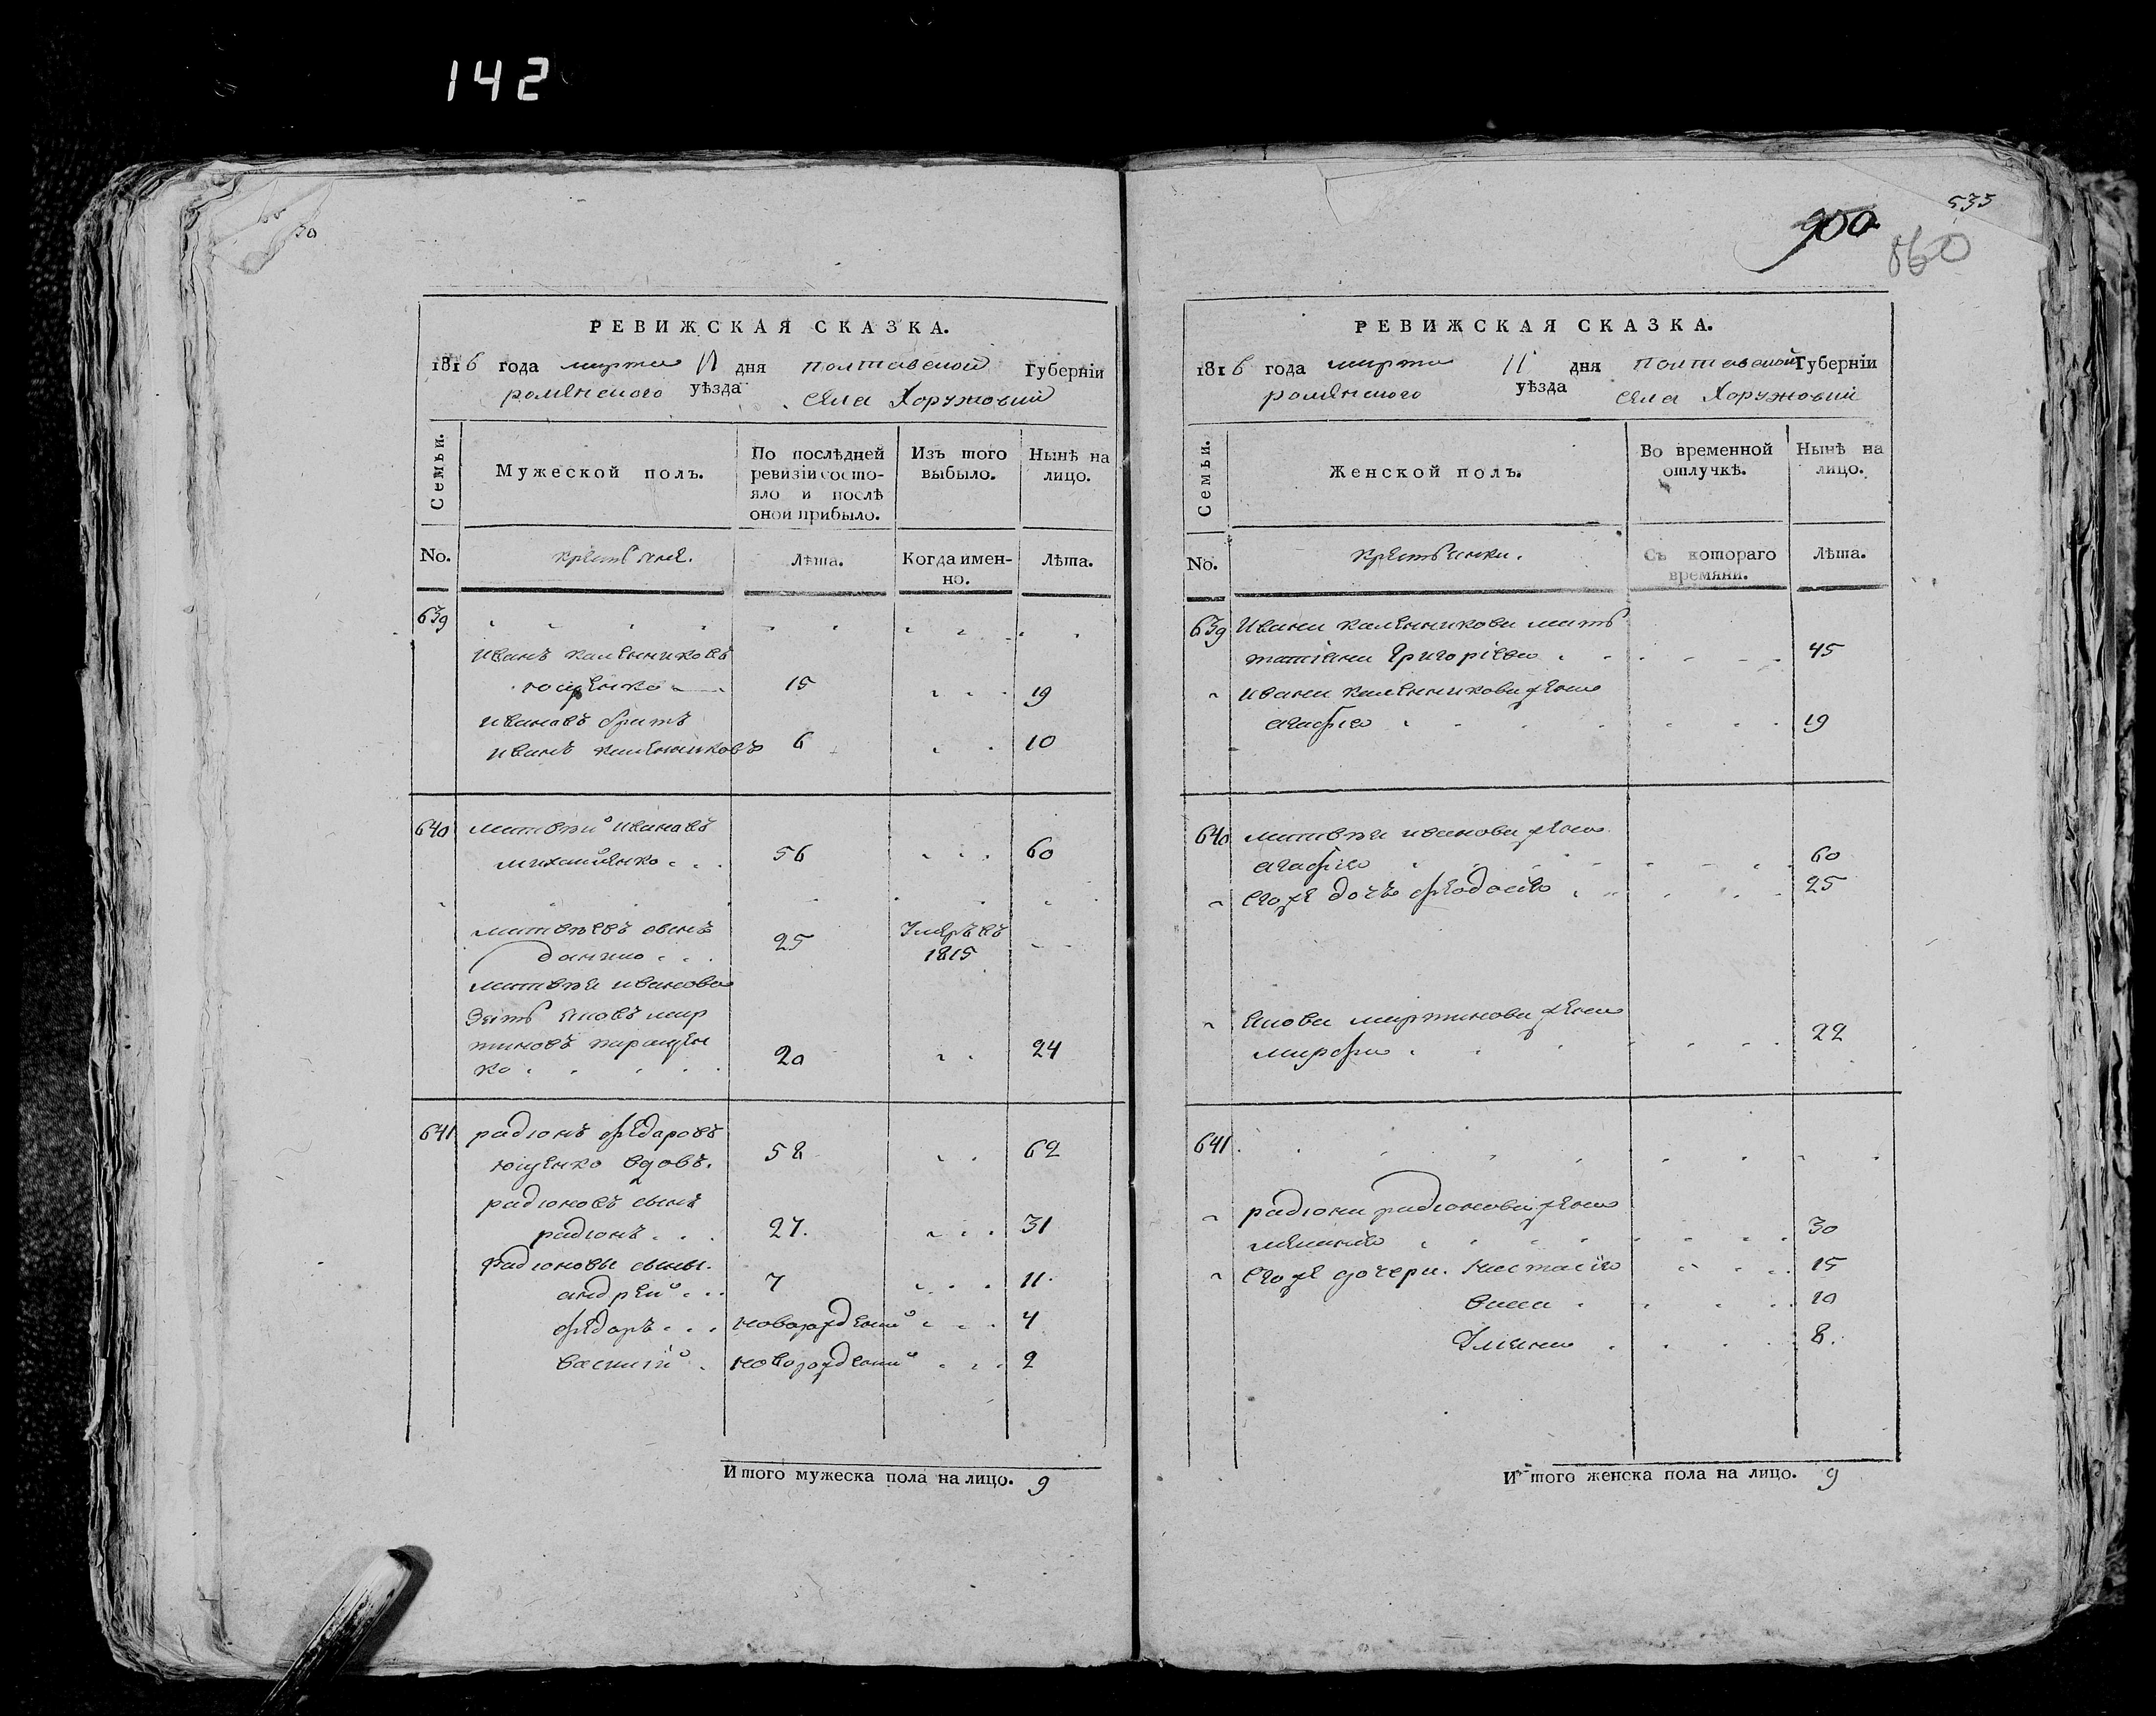 142
30
РЕВИЖСКАЯ СКАЗКА.
1816 года марта 11 дня полтавской Губерніи
роменского уѣзда села Хоружовки
Семьи.
Мужеской полъ.
По послѣдней ревизіи состояло и послѣ оной прибыло.
Изъ того выбыло.
Нынѣ на лицо.
No.
крестьяне.
Лѣта.
Когда именно.
Лѣта.
639
Иванъ каленниковъ
ющенко 15 19
Ивановъ братъ
Иванъ каленниковъ 6 10
640 матвѣй Ивановъ
михайленко 56 60
матвѣевъ сынъ
данило 25 Умеръ въ 1815
матвѣя иванова
Зять Яковъ мар
тиновъ паращен
ко 20 24
641 радіонъ федаровъ
ющенко вдовъ. 58 62
радіоновъ сынъ
радіонъ 27. 31
Радіоновы сыны.
андрей 7 11.
федоръ новорожденый 4
василій новорожденый 2
Итого мужеска пола на лицо. 9
900
535
860
РЕВИЖСКАЯ СКАЗКА.
1816 года марта 11 дня полтавской Губерніи
роменского уѣзда села Хоружовки
Семьи.
Женской полъ.
Во временной отлучкѣ.
Нынѣ на лицо.
No.
крестьянки.
Съ котораго времяни.
Лѣта.
639 Ивана каленникова мать
татіана Григоріева 45
Ивана каленникова жена
агафія 19
640 матвѣя иванова жена
агафія 60
его же дочь феодосія 25
Якова мартинова жена
марфа 22
641
радіона радіонова жена
меланія 30
его же дочери. настасія 15
васса 10
Уляна 8.
Итого женска пола на лицо. 9